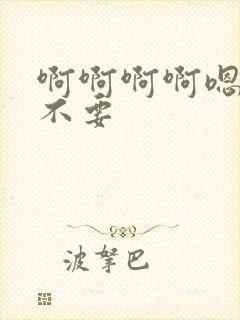 啊啊啊啊嗯
不要
波拏巴